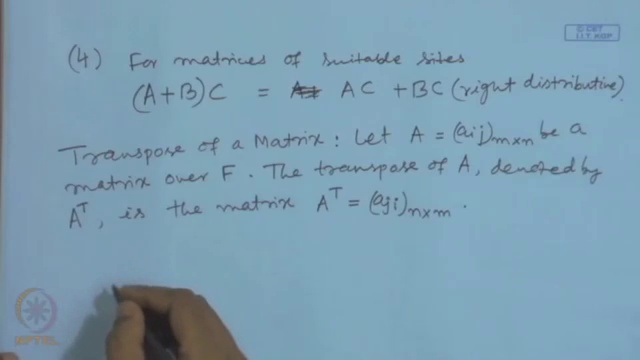 © CET
I.I.T. KGP
(4) For matrices of suitable sites
(A+B)C = AC + BC (right distributive).
Transpose of a Matrix: Let A = (aij)m×n be a
matrix over F. The transpose of A, denoted by
A^T, is the matrix A^T = (aji)n×m.
NPTEL